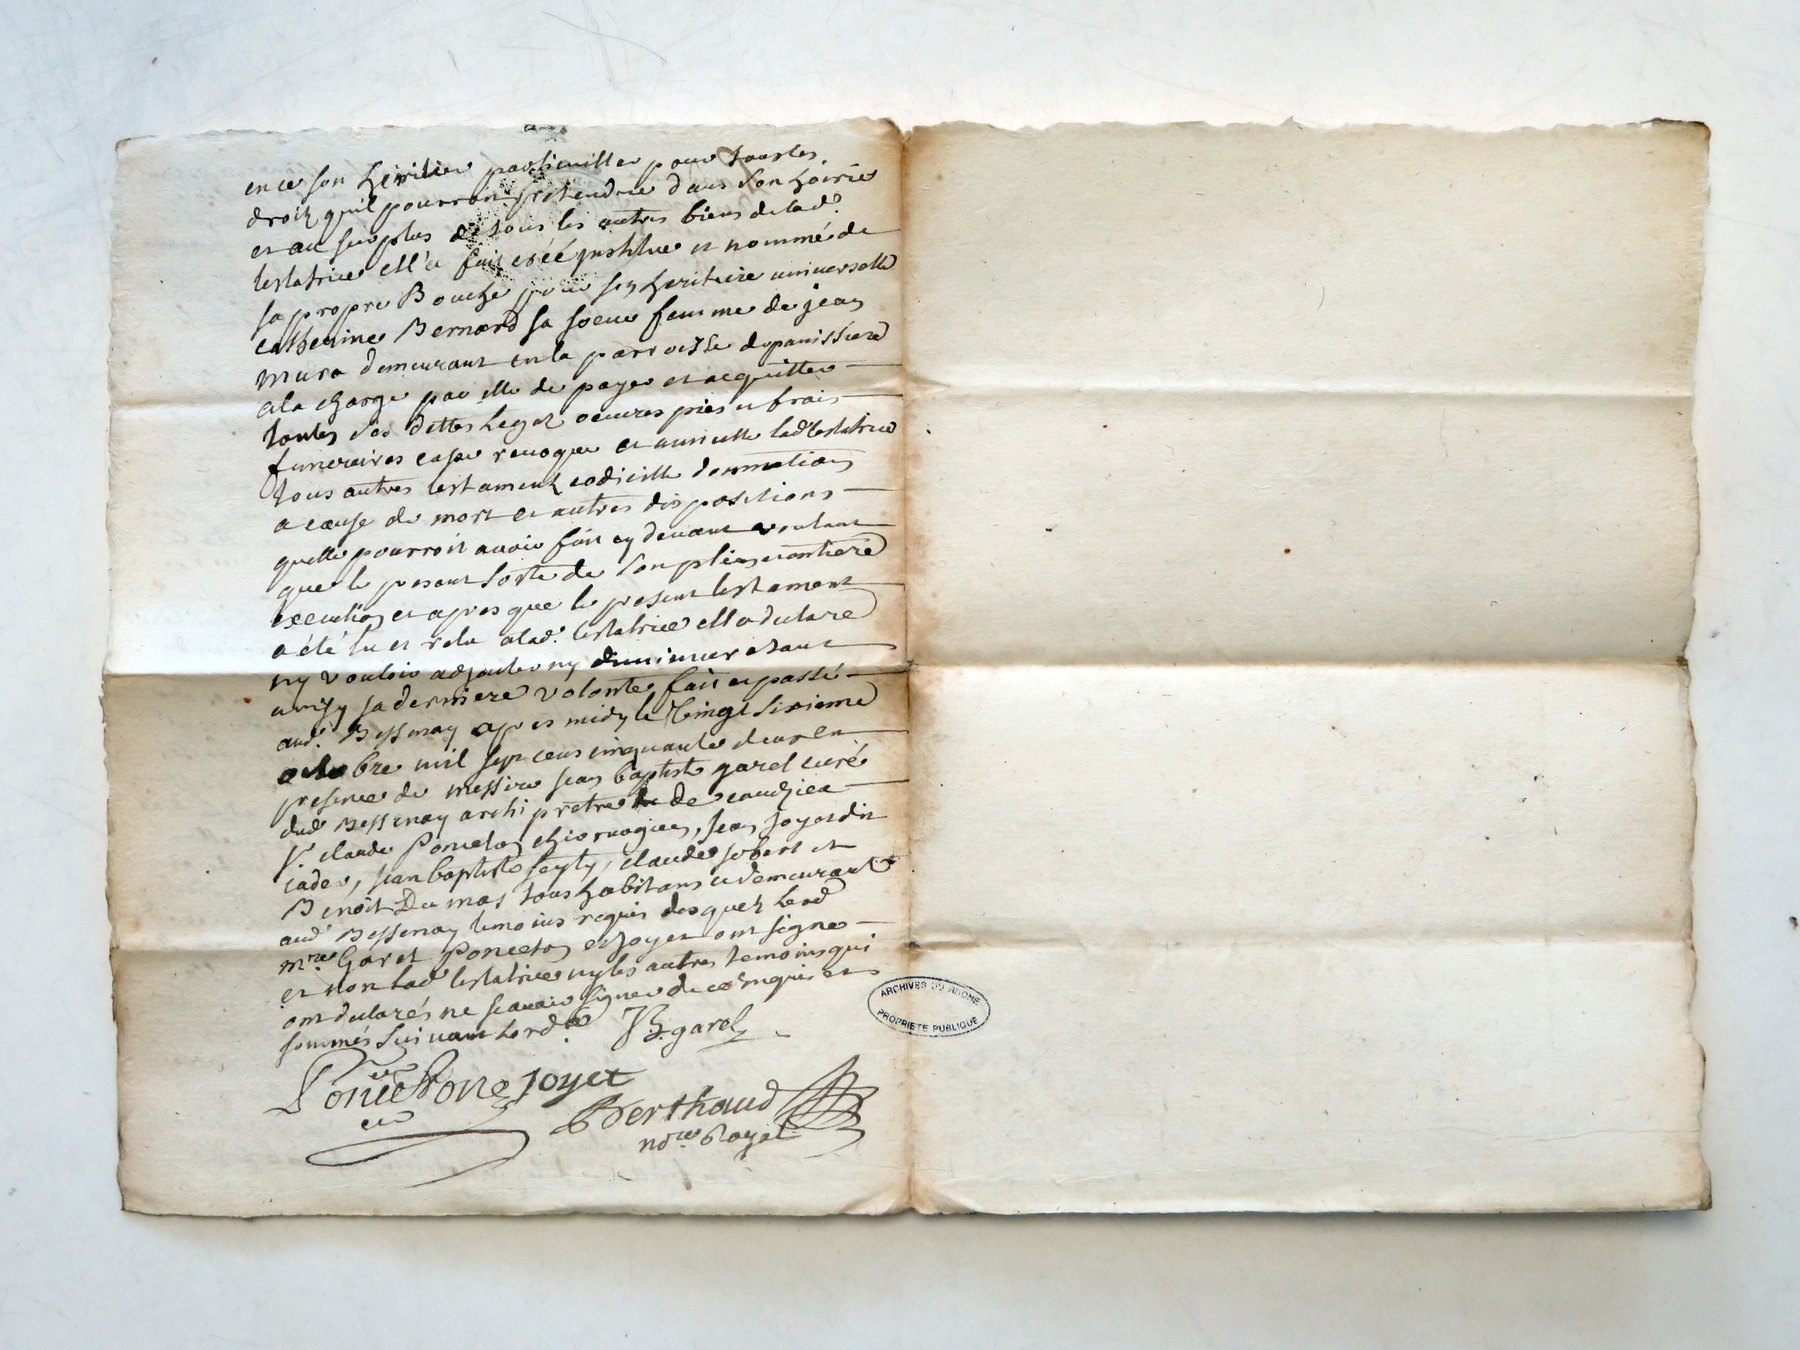 en ce son heritier particuillier pour tous les
droitz quil pourroit pretendre dans son hoirie
et au surplus de tous les autres biens de lad.
testatrice ell'a fait créé institue et nommé de
sa propre Bouche pour son heritiere universelle
catherine Bernard sa soeur femme de jean
mura demeurant en la parroisse de panissiere
ala charge par elle de payer et acquitter
toutes ses dettes legatz oeuvres pies et frais
funeraires casse revoque et annulle lad testatrice
tous autres testamentz codicille donnation
a cause de mort et autres dispositions
quelle pourroit avoir fait cy devant voulant
que le present sorte de son plein et entiere
execution et apres que le present testament
a été lu et relu a lad. testatrice ell a declaré
ny vouloir adjouter ny diminuer estant
ainsy sa derniere volonté fait et passé
aud. Bessenay apres midy le vingt sixieme
octobre mil sept cens cinquante deux en
presence de messire jean baptiste garel curé
dud Bessenay archi pretre de courzieu
Sr. claude Ponceton chirurgien, jean joyet dit
cadet, jean baptiste feyty, claude jobert et
Benoit Dumas tous habitans et demeurant
aud. Bessenay temoins requis desquelz led
mre. Garel Ponceton et joyet ont signe
et non lad testatrice ny les autres temoins qui
ont declarés ne scavoir signer de ce enquis et
sommés suivant lord.
JB. garel
Ponceton joyet
Berthaud
nore Royal
ARCHIVES DU RHONE
PROPRIETE PUBLIQUE